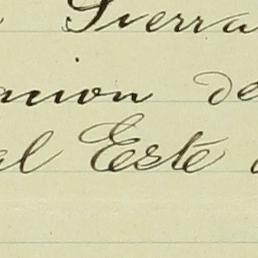 Sierra
acion de
al Este